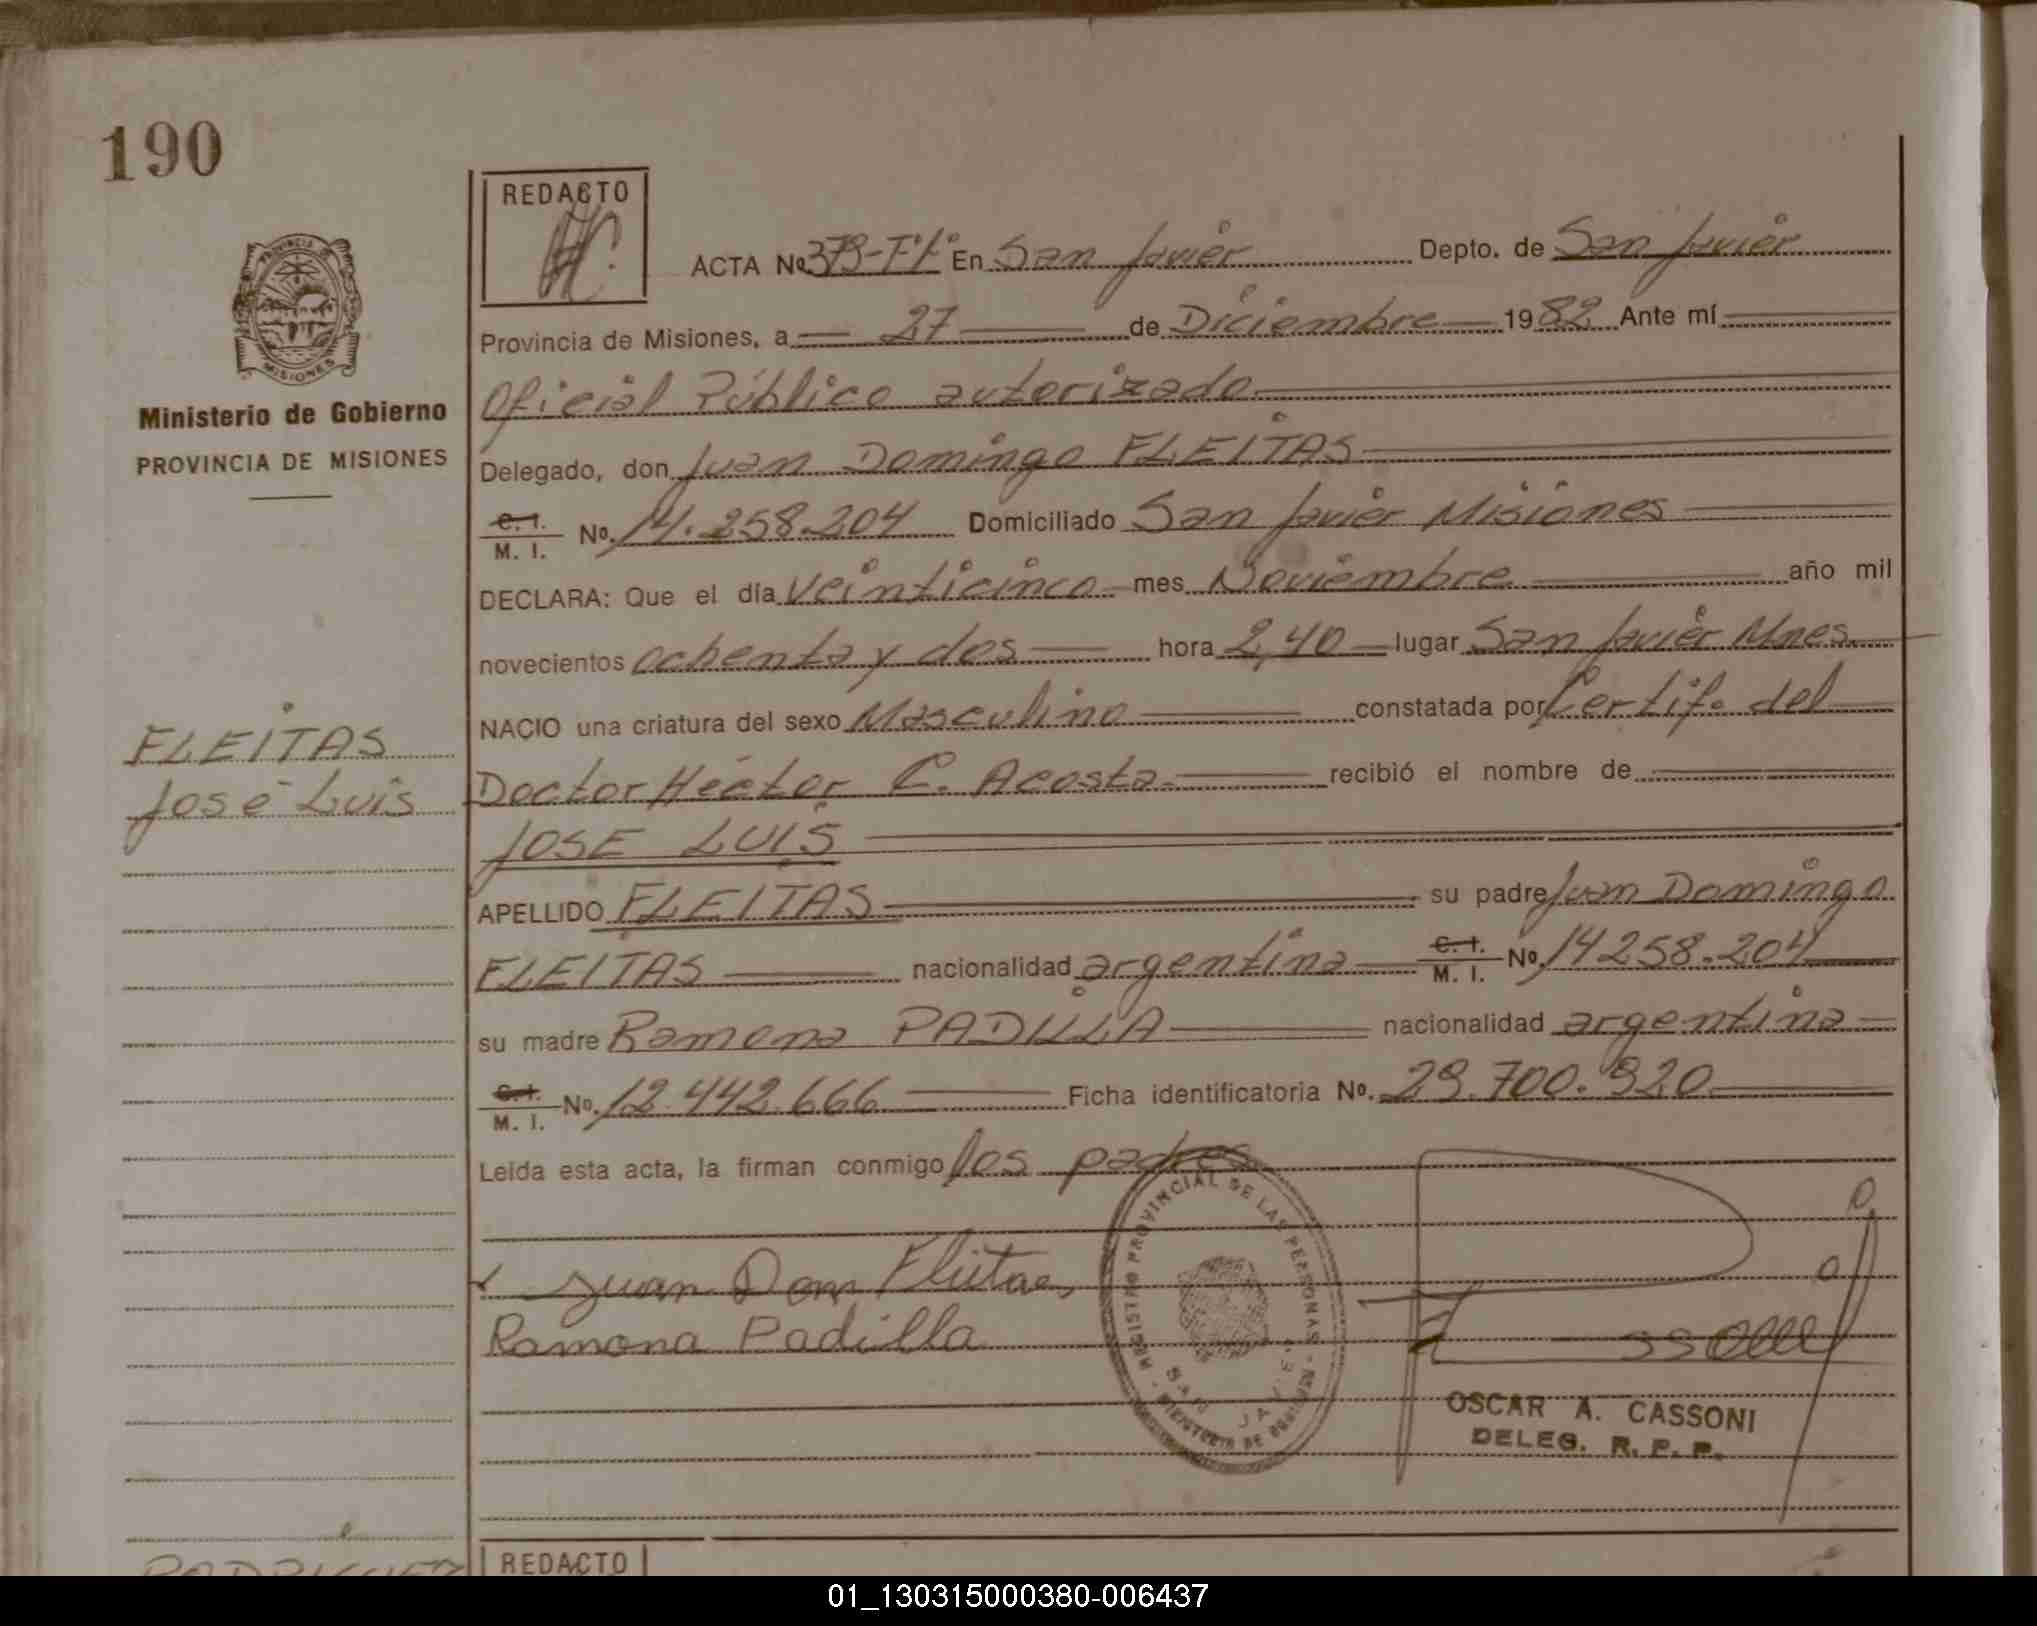 190
REDACTO
ACTA No 379-Tº1º En San Javier Depto. de San Javier
Provincia de Misiones, a 27 de Diciembre 1982 Ante mí
Oficial Público autorizado
Delegado, don Juan Domingo FLEITAS
C. I.
M. I. No. 14.258.204 Domiciliado San Javier Misiones
DECLARA: Que el día Veinticinco mes Noviembre año mil
novecientos ochenta y dos hora 2,40 lugar San Javier Mnes.
NACIO una criatura del sexo Masculino constatada por Certif. del
Doctor Héctor C. Acosta recibió el nombre de
JOSE LUIS
APELLIDO FLEITAS su padre Juan Domingo
FLEITAS nacionalidad argentina C. I. M. I. No. 14258.204
su madre Ramona PADILLA nacionalidad argentina
C. I. M. I. No. 12.442.666 Ficha identificatoria No. 29.700.920
Leída esta acta, la firman conmigo los padres
Juan Dom Fleitas
Ramona Padilla
REGISTRO PROVINCIAL DE LAS PERSONAS - MINISTERIO DE GOBIERNO
SAN JAVIER
OSCAR A. CASSONI
DELEG. R. P. P.
PROVINCIA DE
MISIONES
Ministerio de Gobierno
PROVINCIA DE MISIONES
FLEITAS
José Luis
RODRIGUEZ
REDACTO
01_130315000380-006437